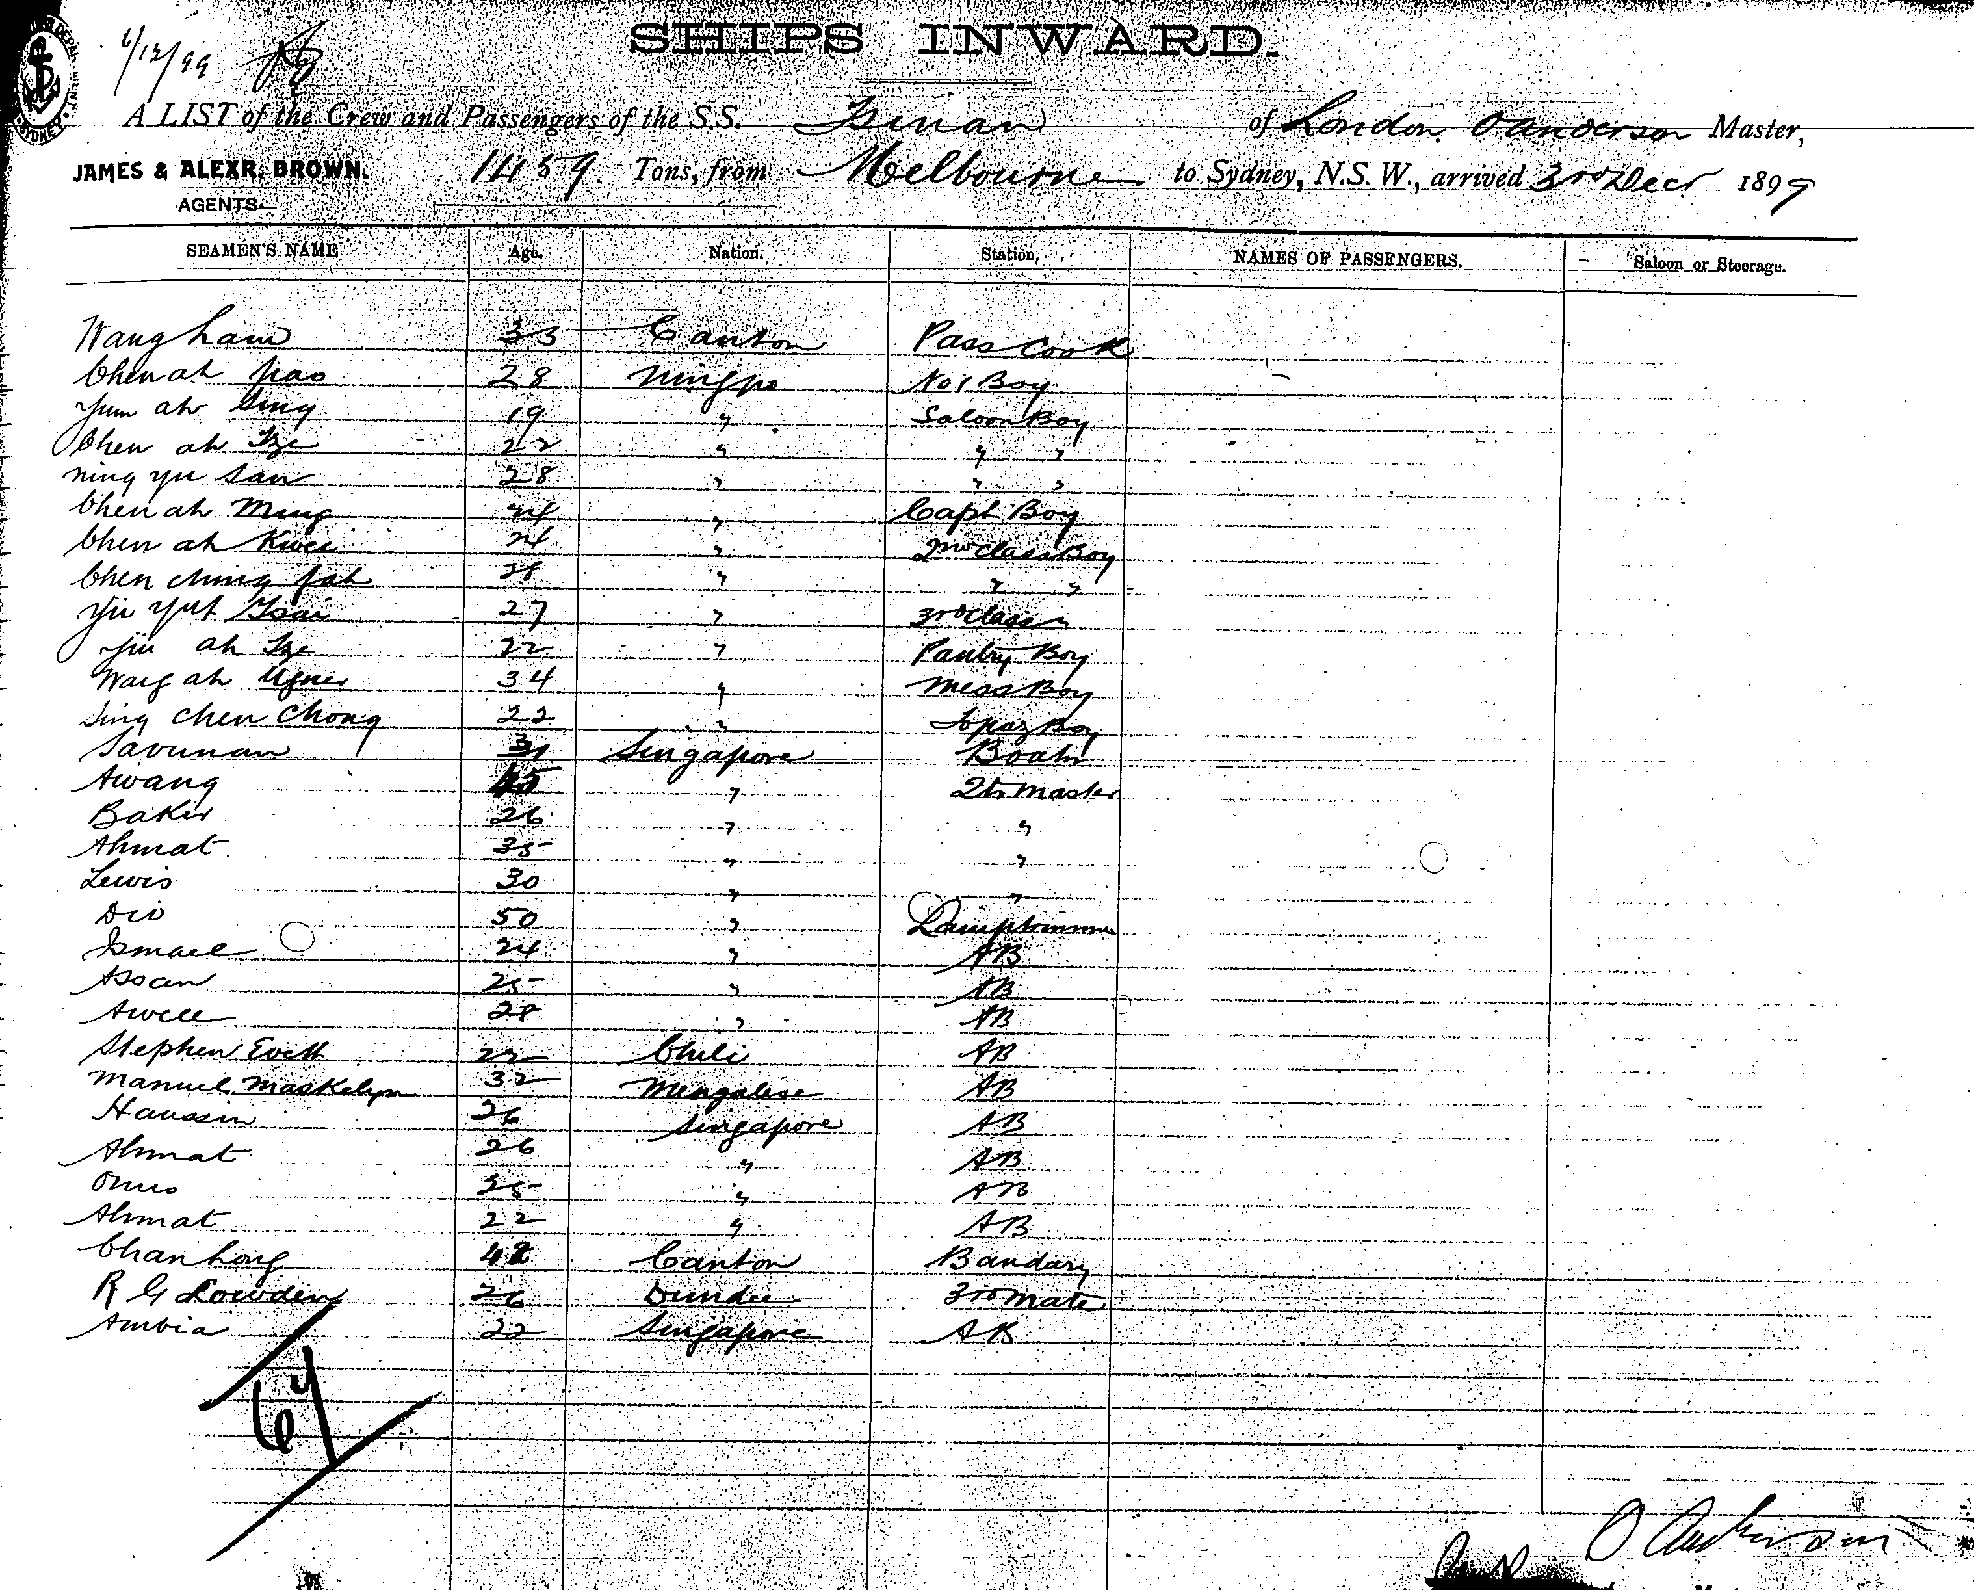 6/12/99
SHIPS INWARD.
A LIST of the Crew and Passengers of the S.S. Tsinan of London O Anderson Master,
JAMES & ALEXR. BROWN, 1459 Tons, from Melbourne to Sydney, N.S.W., arrived 3rd Decr 1899
AGENTS
SEAMEN'S NAME Age. Nation. Station. NAMES OF PASSENGERS. Saloon or Steerage.
Wang ham 33 Canton Pass Cook
Chen ah pao 28 Ningpo No 1 Boy
Yum ah Sing 19 " Saloon Boy
Chen ah Tze 22 " " "
Ning yu San 28 " " "
Chen ah Ming 24 " Capt Boy
Chen ah Kwei 24 " 2nd Class Boy
Chen ching fah 28 " " "
Yiu Yut Tsai 27 " 3rd Class "
Yiu ah Tze 22 " Pantry Boy
Wang ah 34 " Mess Boy
Sing Chen Chong 22 " Topaz Boy
Savunan Singapore Boatn
Awang 45 " Qtr Master
Baker 26 " "
Ahmat 35 " "
Lewis 30 " "
Dio 50 " Lamptrimmer
Ismael 24 " AB
Assan 25 " AB
Awee 28 " AB
Stephen Evett 22 Chili AB
Manuel Maskelyn 32 AB
Haussin 26 Singapore AB
Ahmat 26 " AB
Omo 25 " AB
Ahmat 22 " AB
Chan hong 48 Canton Bandary
R G Lowden 26 Dundee 3rd Mate
Ambia 22 Singapore AB
64
O Anderson